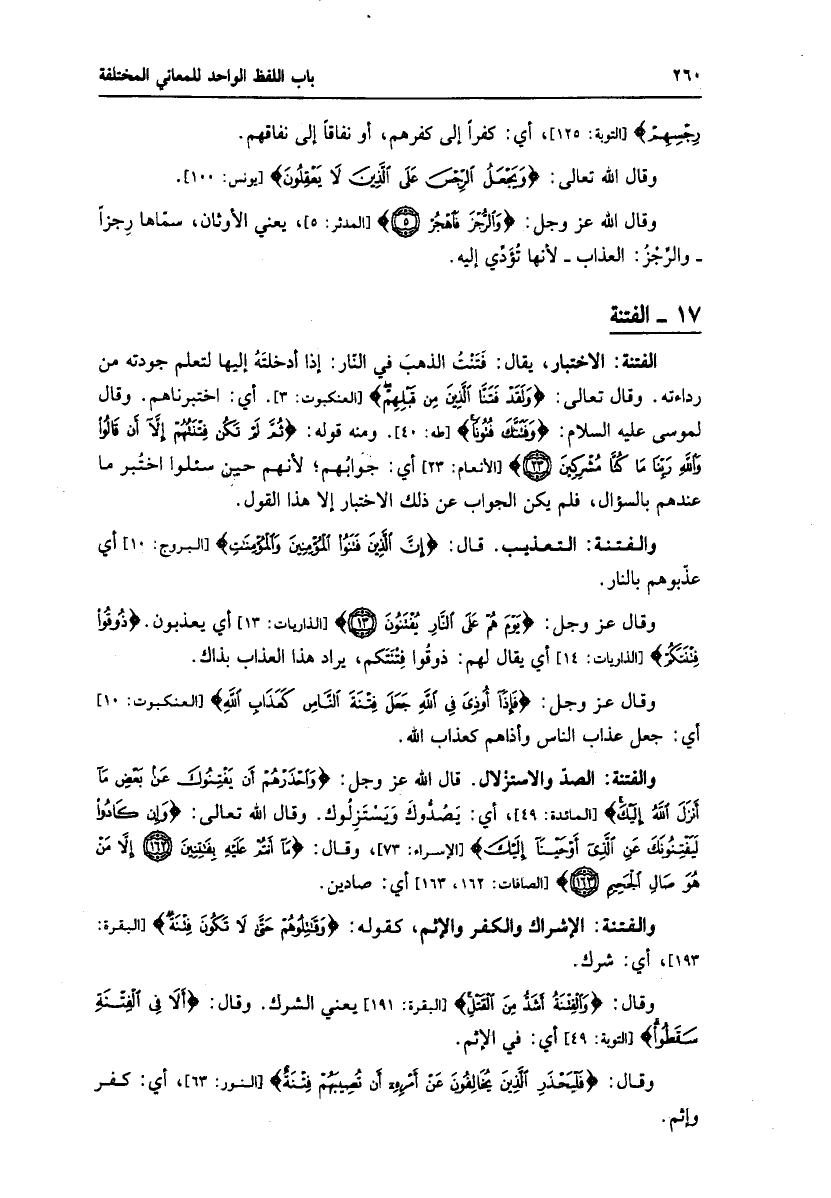 ٢٦٠ باب اللفظ الواحد للمعاني المختلفة
رِجْسِهِمْ﴾ [التوبة: ١٢٥]، أي: كفراً إلى كفرهم، أو نفاقاً إلى نفاقهم.
وقال الله تعالى: ﴿وَيَجْعَلُ ٱلرِّجْسَ عَلَى ٱلَّذِينَ لَا يَعْقِلُونَ﴾ [يونس: ١٠٠].
وقال الله عز وجل: ﴿وَٱلرُّجْزَ فَٱهْجُرْ ٥﴾ [المدثر: ٥]، يعني الأوثان، سمّاها رِجزاً
ـ والرِّجْزُ: العذاب ـ لأنها تُؤَدِّي إليه.
١٧ ـ الفتنة
الفتنة: الاختبار، يقال: فَتَنْتُ الذهبَ في النّار: إذا أدخلتَهُ إليها لتعلم جودته من
رداءته. وقال تعالى: ﴿وَلَقَدْ فَتَنَّا ٱلَّذِينَ مِن قَبْلِهِمْ﴾ [العنكبوت: ٣]. أي: اختبرناهم. وقال
لموسى عليه السلام: ﴿وَفَتَنَّٰكَ فُتُونًا﴾ [طه: ٤٠]. ومنه قوله: ﴿ثُمَّ لَمْ تَكُن فِتْنَتُهُمْ إِلَّآ أَن قَالُوا۟
وَٱللَّهِ رَبِّنَا مَا كُنَّا مُشْرِكِينَ ٢٣﴾ [الأنعام: ٢٣] أي: جوابُهم؛ لأنهم حين سئلوا اختُبر ما
عندهم بالسؤال، فلم يكن الجواب عن ذلك الاختبار إلا هذا القول.
والفتنة: التعذيب. قال: ﴿إِنَّ ٱلَّذِينَ فَتَنُوا۟ ٱلْمُؤْمِنِينَ وَٱلْمُؤْمِنَٰتِ﴾ [البروج: ١٠] أي
عذّبوهم بالنار.
وقال عز وجل: ﴿يَوْمَ هُمْ عَلَى ٱلنَّارِ يُفْتَنُونَ ١٣﴾ [الذاريات: ١٣] أي يعذبون. ﴿ذُوقُوا۟
فِتْنَتَكُمْ﴾ [الذاريات: ١٤] أي يقال لهم: ذوقُوا فِتْنَتَكم، يراد هذا العذاب بذاك.
وقال عز وجل: ﴿فَإِذَآ أُوذِىَ فِى ٱللَّهِ جَعَلَ فِتْنَةَ ٱلنَّاسِ كَعَذَابِ ٱللَّهِ﴾ [العنكبوت: ١٠]
أي: جعل عذاب الناس وأذاهم كعذاب الله.
والفتنة: الصدّ والاستزلال. قال الله عز وجل: ﴿وَٱحْذَرْهُمْ أَن يَفْتِنُوكَ عَنۢ بَعْضِ مَآ
أَنزَلَ ٱللَّهُ إِلَيْكَ﴾ [المائدة: ٤٩]، أي: يَصُدُّوكَ وَيَسْتَزِلُوك. وقال الله تعالى: ﴿وَإِن كَادُوا۟
لَيَفْتِنُونَكَ عَنِ ٱلَّذِىٓ أَوْحَيْنَآ إِلَيْكَ﴾ [الإسراء: ٧٣]، وقال: ﴿مَآ أَنتُمْ عَلَيْهِ بِفَٰتِنِينَ ١٦٢ إِلَّا مَنْ
هُوَ صَالِ ٱلْجَحِيمِ ١٦٣﴾ [الصافات: ١٦٢، ١٦٣] أي: صادين.
والفتنة: الإشراك والكفر والإثم، كقوله: ﴿وَقَٰتِلُوهُمْ حَتَّىٰ لَا تَكُونَ فِتْنَةٌ﴾ [البقرة:
١٩٣]، أي: شرك.
وقال: ﴿وَٱلْفِتْنَةُ أَشَدُّ مِنَ ٱلْقَتْلِ﴾ [البقرة: ١٩١] يعني الشرك. وقال: ﴿أَلَا فِى ٱلْفِتْنَةِ
سَقَطُوا۟﴾ [التوبة: ٤٩] أي: في الإثم.
وقال: ﴿فَلْيَحْذَرِ ٱلَّذِينَ يُخَالِفُونَ عَنْ أَمْرِهِۦٓ أَن تُصِيبَهُمْ فِتْنَةٌ﴾ [النور: ٦٣]، أي: كفر
وإثم.